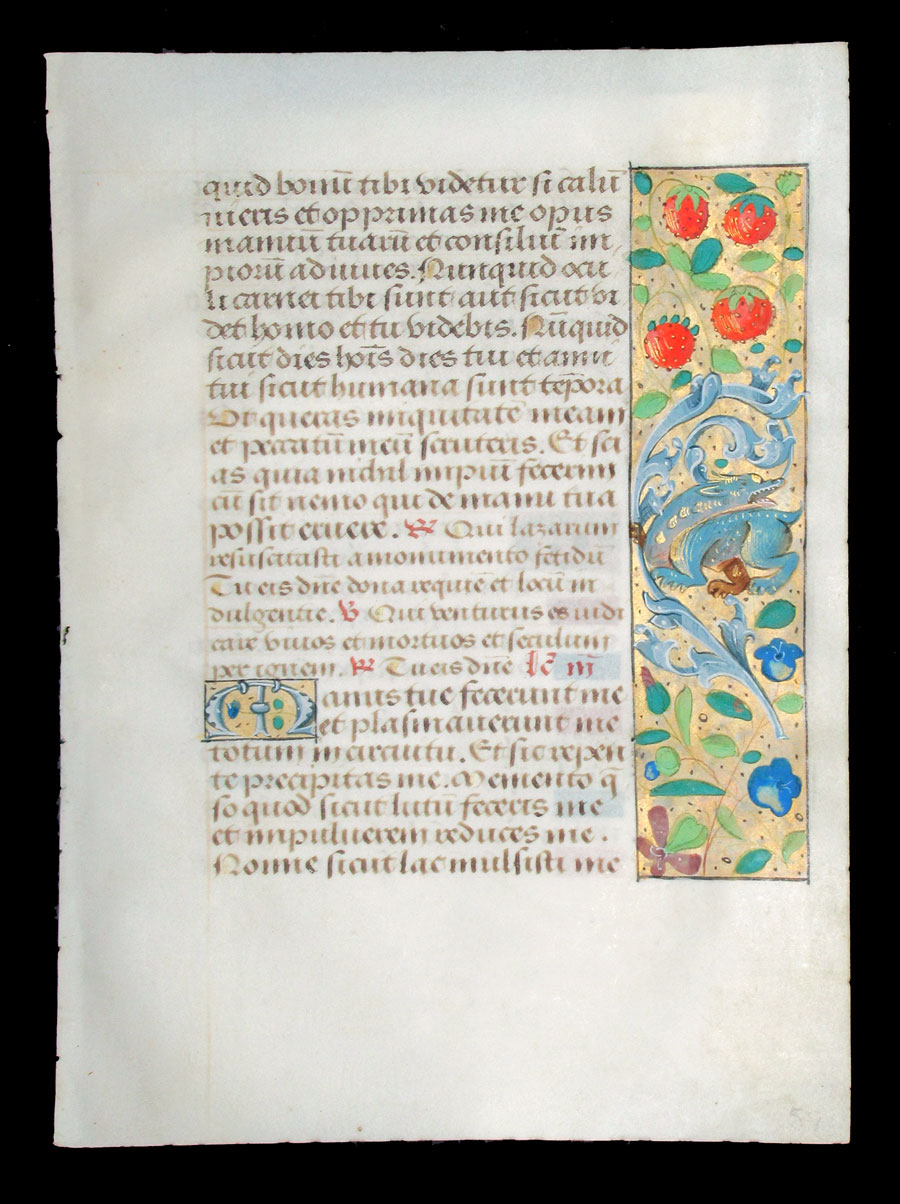 quid bonū tibi videtur si calū
nieris et opprimas me opus
manuū tuarū et consiliū im
piorū adiuues. Nunquid ocu
li carnei tibi sunt aut sicut vi
det homo et tu videbis. Nūquid
sicut dies hoīs dies tui et anni
tui sicut humana sunt tēpora
Ut queras iniquitatē meam
et peccatū meū scruteris. Et sci
as quia nihil impiū fecerim
cū sit nemo qui de manu tua
possit eruere. R Qui lazarum
resuscitasti a monumento fetidū
Tu eis dn̄e dona requiē et locū in
dulgentie. V Qui venturus es iudi
care vivos et mortuos et seculum
per ignem. R Tu eis dn̄e lc̄ iii
Manus tue fecerunt me
et plasmaverunt me
totum in circuitu. Et sic repen
te precipitas me. Memento q̄
so quod sicut lutū feceris me
et in pulverem reduces me.
Nonne sicut lac mulsisti me